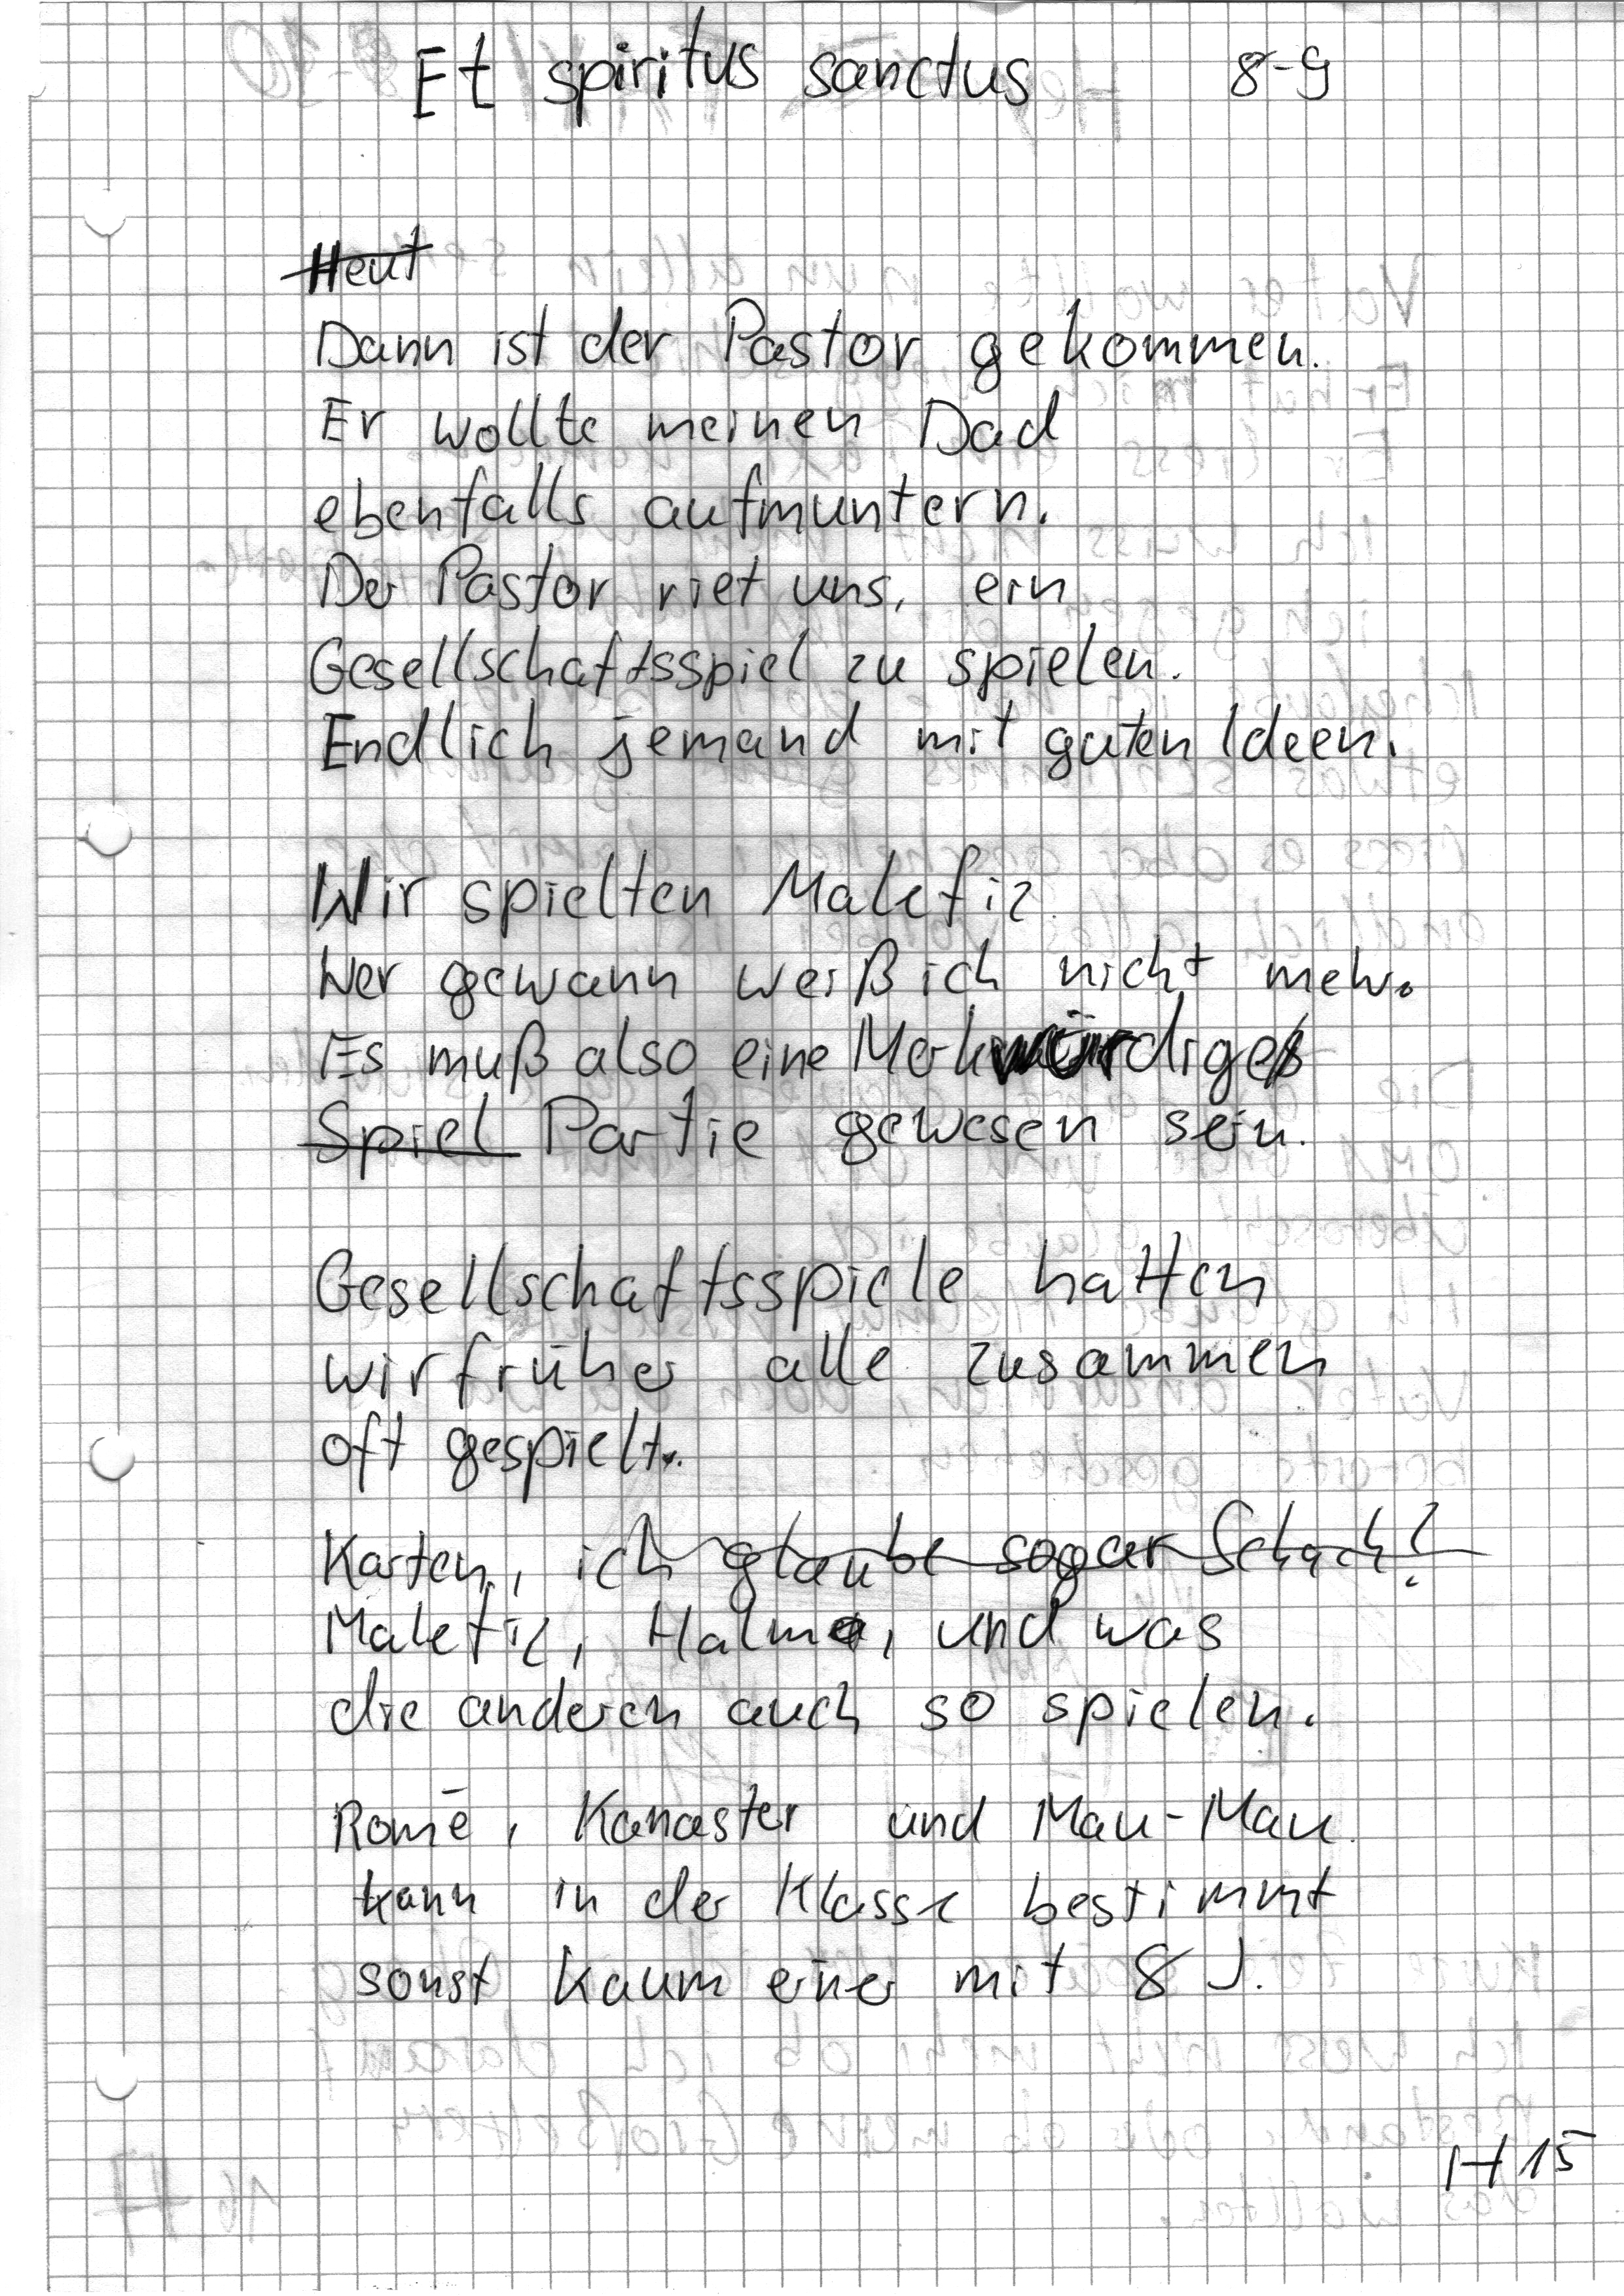 Et spiritus sanctus 8-9
Heut
Dann ist der Pastor gekommen.
Er wollte meinen Dad
ebenfalls aufmuntern.
Der Pastor riet uns, ein
Gesellschaftsspiel zu spielen.
Endlich jemand mit guten Ideen.
Wir spielten Malefiz.
Wer gewann weiß ich nicht mehr.
Es muß also eine Merkwürdige
Spiel Partie gewesen sein.
Gesellschaftsspiele hatten
wir früher alle zusammen
oft gespielt.
Karten, ich glaube sogar Schach!
Malefiz, Halma, und was
die anderen auch so spielen.
Romé, Kanaster und Mau-Mau
kann in der Klasse bestimmt
sonst kaum einer mit 8 J.
H 15